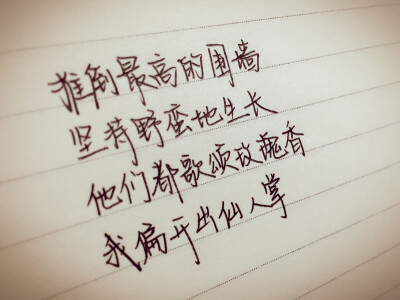 推倒最高的围墙
坚持野蛮地生长
他们都歌颂玫瑰香
我偏开出仙人掌